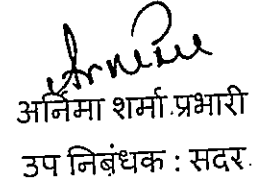 अर्निमा शर्मा.प्रभारी
उप निबंधक : सदर